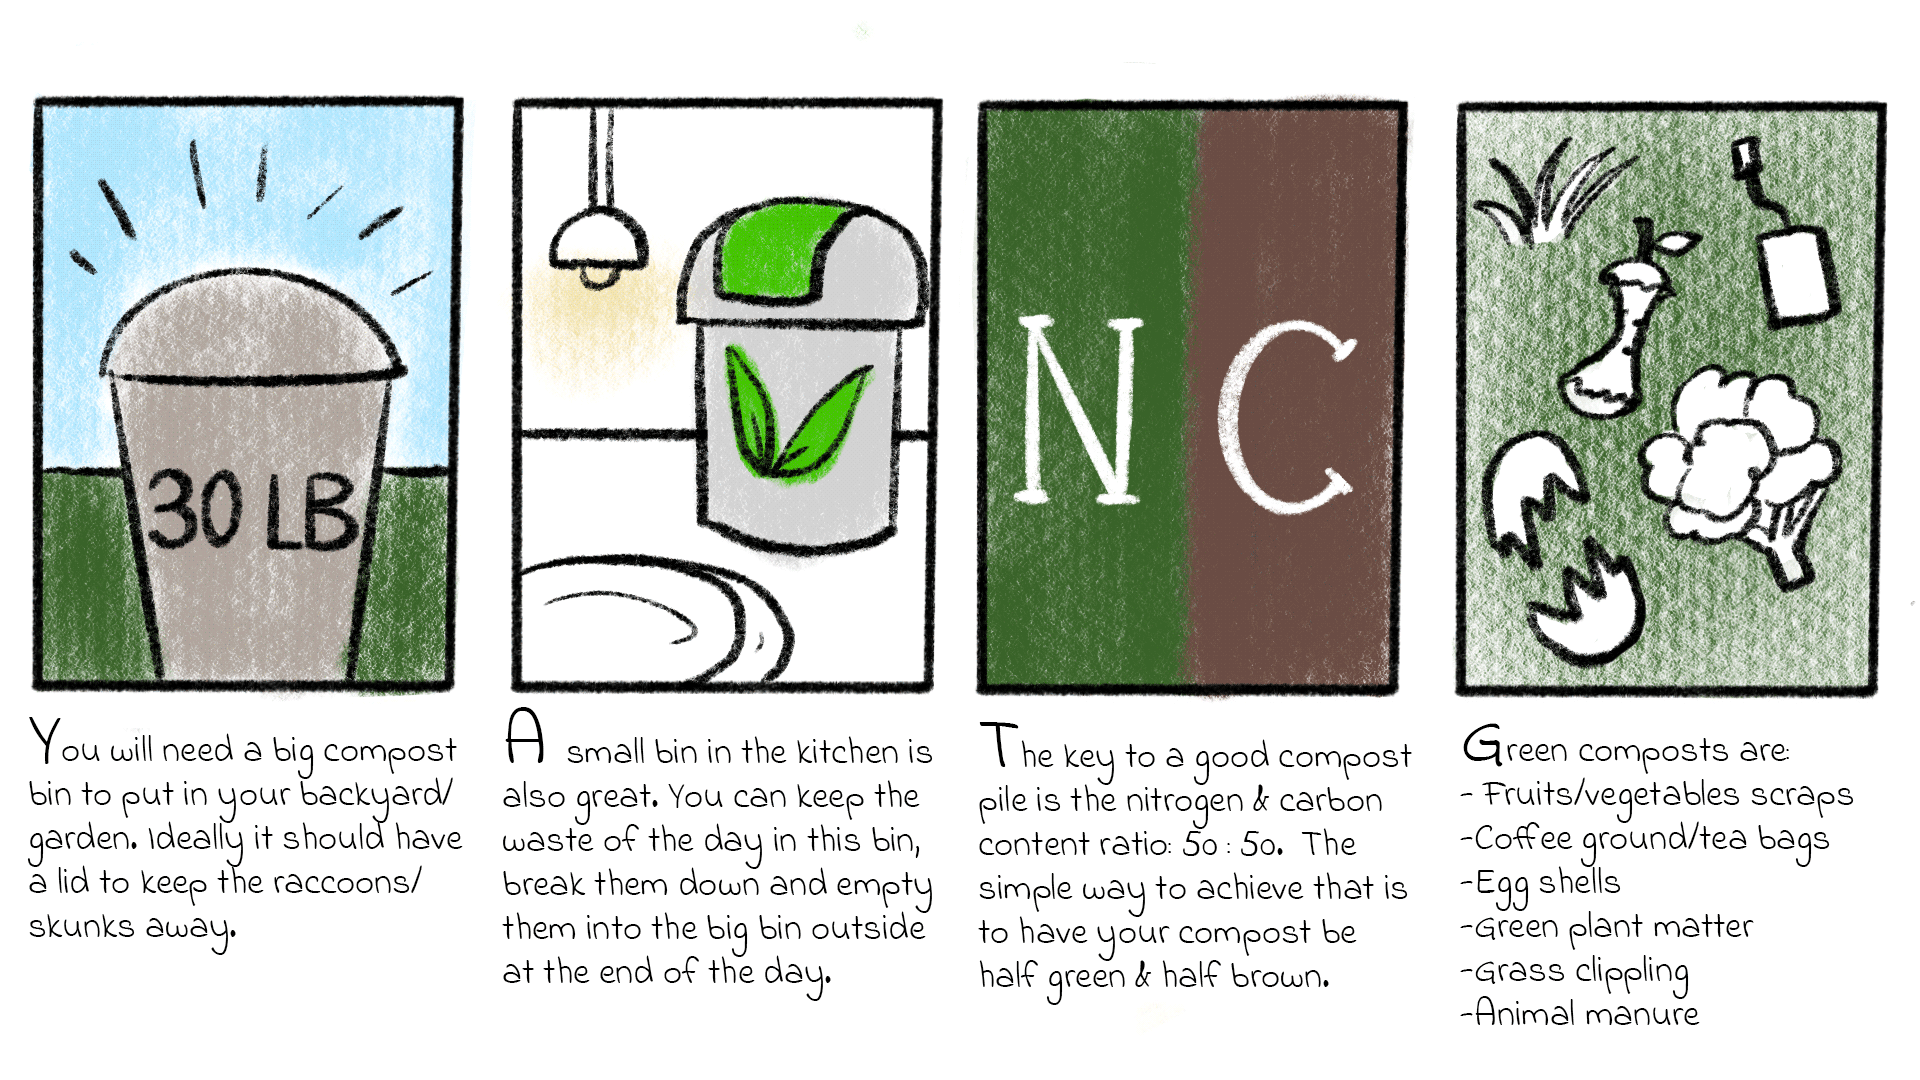 30 LB
You will need a big compost
bin to put in your backyard/
garden. Ideally it should have
a lid to keep the raccoons/
skunks away.
A small bin in the kitchen is
also great. You can keep the
waste of the day in this bin,
break them down and empty
them into the big bin outside
at the end of the day.
N C
The key to a good compost
pile is the nitrogen & carbon
content ratio: 50 : 50. The
simple way to achieve that is
to have your compost be
half green & half brown.
Green composts are:
- Fruits/vegetables scraps
-Coffee ground/tea bags
-Egg shells
-Green plant matter
-Grass clippling
-Animal manure